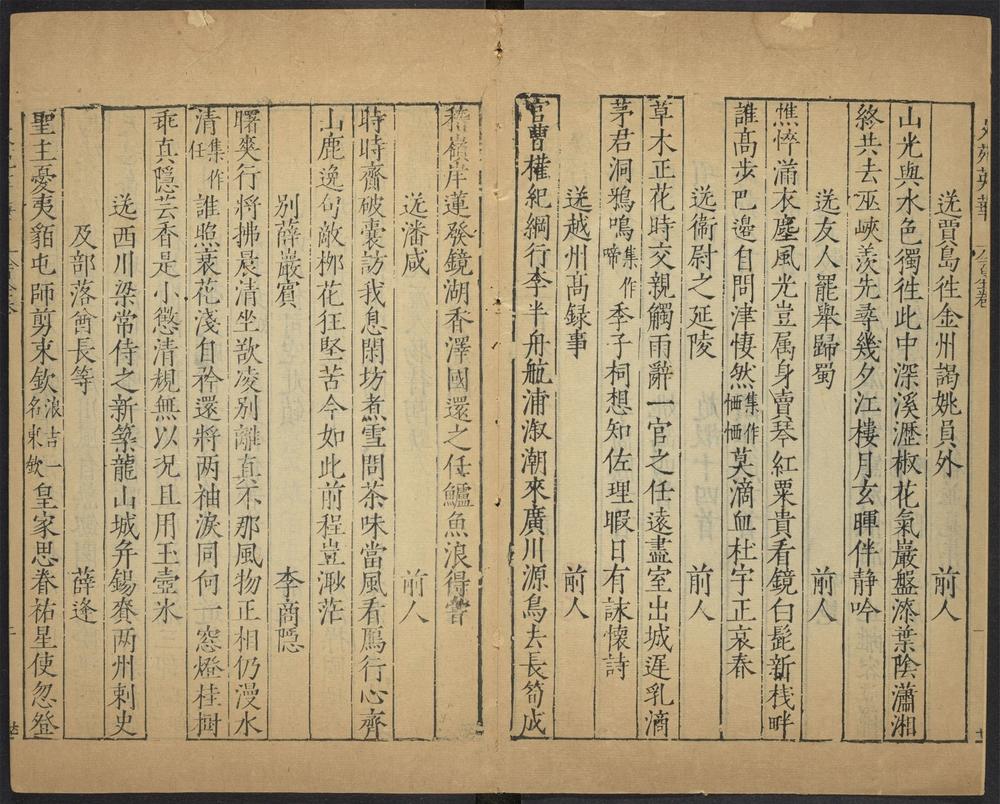 文苑英華
送賈島徃金州謁姚員外 前人
山光與水色獨徃此中深溪瀝椒花氣巖盤漆葉陰瀟湘
終共去巫峽羡先尋幾夕江樓月玄暉伴静吟
送友人罷舉歸蜀 前人
憔悴滿衣塵風光豈属身賣琴紅粟貴看鏡白髭新栈畔
誰髙步巴邉自問津悽然集作恓恓莫滴血杜宇正哀春
送衛尉之延陵 前人
草木正花時交親觸雨辭一官之任逺盡室出城遲乳滴
茅君洞鴉鳴集作啼季子祠想知佐理暇日有詠懐詩
送越州髙録事 前人
官曹權紀綱行李半舟航浦溆潮來廣川源鳥去長筍成
稽嶺岸蓮發鏡湖香澤國還之任鱸魚浪得甞
送潘咸 前人
時時齋破囊訪我息閑坊煮雪問茶味當風看鴈行心齊
山鹿逸句敵栁花狂堅苦今如此前程豈渺茫
别薛嚴賓 李商隠
曙爽行將拂晨清坐欲凌别離真不那風物正相仍漫水
清集作任誰照衰花淺自矜還將两袖淚同何一窓燈桂樹
乖真隠芸香是小懲清規無以况且用玉壺氷
送西川梁常侍之新築龍山城弁錫賚两州刺史
及部落酋長等 薛逢
聖主憂夷貊屯師剪東欽浪吉一名東欽皇家思眷祐星使忽登